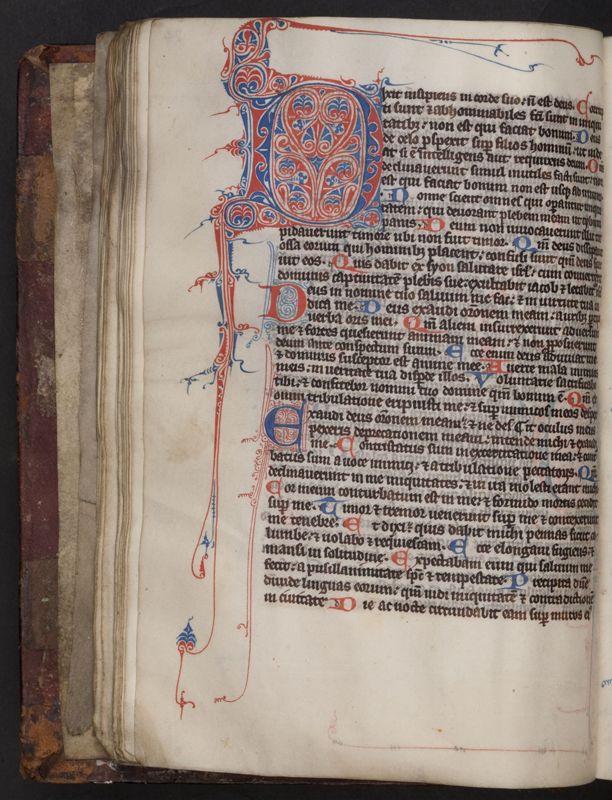 Dixit insipiens in corde suo: ñ est deus. Corrup
ti sunt ⁊ abhominabiles fc̄i sunt in iniqui
tatibꝫ: non est qui faciat bonum. Deus
de celo ꝓspexit suꝑ filios hominum: ut uide
at si ē intelligens aut requirens deum. Om̄
declinauerunt simul inutiles facti sunt: non
est qui faciat bonum non est usqꝫ ad unum
Nonne scient om̄es qui oꝑantur iniqui
tatem: qui deuorant plebem meam ut cybum
panis. Deum non inuocauerunt illic tre
pidauerunt timore ubi non fuit timor. Qm̄ deus dissipauit
ossa eorum qui hominibꝫ placent: confusi sunt qm̄ deus spre
uit eos. Quis dabit ex syon salutare isrl̄: cum conuerterit
dominus captiuitatem plebis sue: exultabit iacob ⁊ letabit̄ isrl̄
Deus in nomine tuo saluum me fac: ⁊ in uirtute tua iu
dica me. Deus exaudi orōnem meam: auribꝫ ꝑcipe
uerba oris mei. Qm̄ alieni insurrexerunt aduersum
me ⁊ fortes quesierunt animam meam: ⁊ non proposuerunt
deum ante conspectum suum. Ecce enim deus adiuuat me
⁊ dominus susceptor est anime mee. Auerte mala inimicis
meis: in ueritate tua disꝑde illos. Voluntarie sacrificabo
tibi: ⁊ confitebor nomini tuo domine qm̄ bonum ē. Qm̄ ex
omni tribulatione eripuisti me: ⁊ suꝑ inimicos meos despex
Exaudi deus orōnem meam: ⁊ ne des¶it oculus meus
pexeris deprecationem meam: intende michi ⁊ exaudi
me. Contristatus sum in exercitatione mea: ⁊ contur
batus sum a uoce inimici: ⁊ a tribulatione peccatoris. Qm̄
declinauerunt in me iniquitates: ⁊ in ira molesti erant michi
Cor meum conturbatum est in me: ⁊ formido mortis cecidit
suꝑ me. Timor ⁊ tremor uenerunt suꝑ me ⁊ contexerunt
me tenebre. Et dixi: quis dabit michi pennas sicut co
lumbe: ⁊ uolabo ⁊ requiescam. Ecce elongaui fugiens: ⁊
mansi in solitudine. Expectabam eum qui saluum me
fecit: a pusillanimitate sp̄c ⁊ tempestate. Precipita dn̄e
diuide linguas eorum: qm̄ uidi iniquitatē ⁊ contradictionē
in ciuitate. Die ac nocte circundabit eam suꝑ muros eꝰ